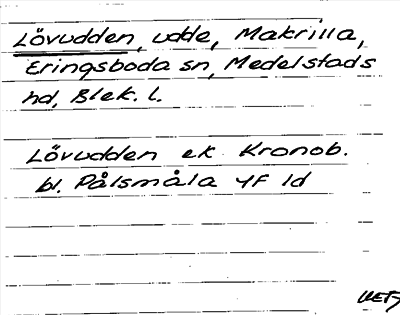 Lövudden, udde, Makrilla,
Eringsboda sn, Medelstads
hd, Blek. l.
Lövudden ek Kronob.
bl. Pålsmåla 4F 1d